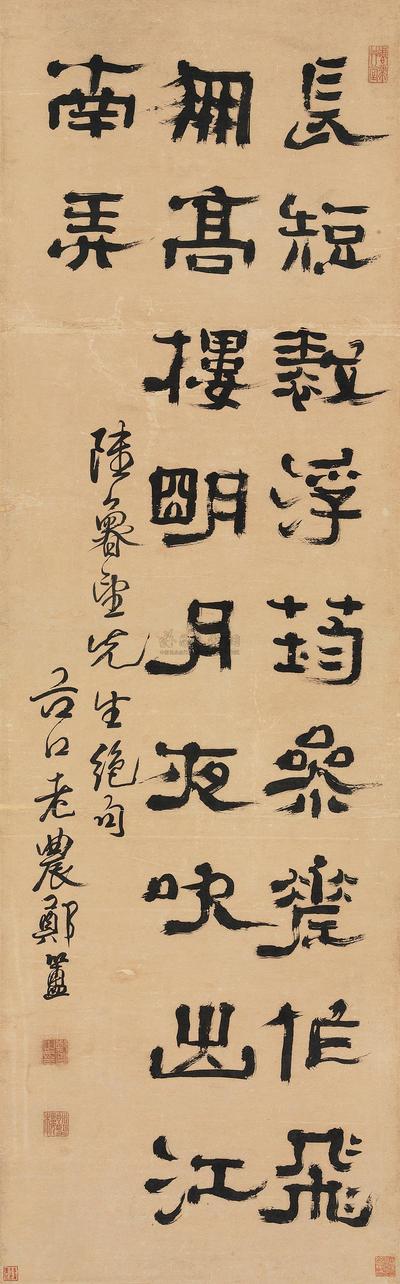 長短裁浮筠參差作飛
鳳高樓明月夜吹出江
南弄
陸魯望先生絕句
谷口老農鄭簠